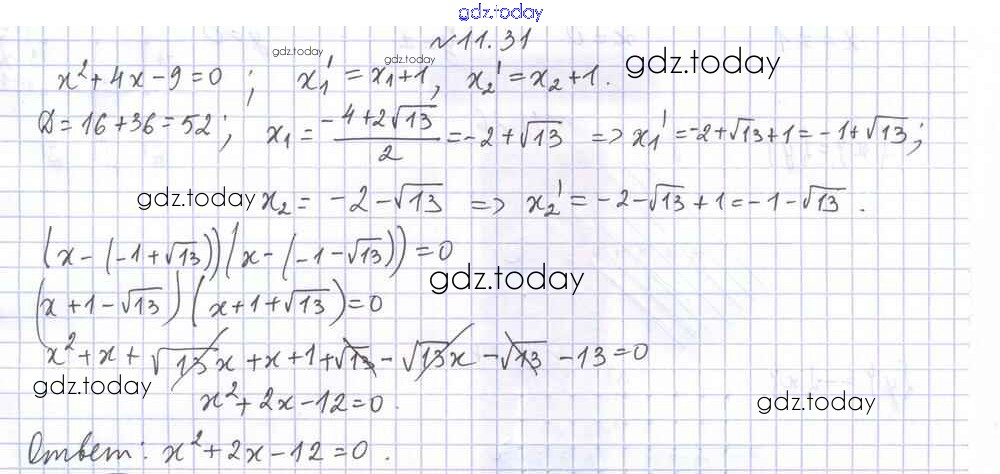 gdz.today
№11.31
gdz.today gdz.today gdz.today
x² + 4x − 9 = 0 ; x₁' = x₁ + 1, x₂' = x₂ + 1.
D = 16 + 36 = 52 ; x₁ = (−4 + 2√13)/2 = −2 + √13 => x₁' = −2 + √13 + 1 = −1 + √13 ;
gdz.today x₂ = −2 − √13 => x₂' = −2 − √13 + 1 = −1 − √13 .
(x − (−1 + √13))(x − (−1 − √13)) = 0
gdz.today
(x + 1 − √13)(x + 1 + √13) = 0
x² + x + √13x + x + 1 + √13 − √13x − √13 − 13 = 0
gdz.today
x² + 2x − 12 = 0 .
gdz.today
Ответ: x² + 2x − 12 = 0 .